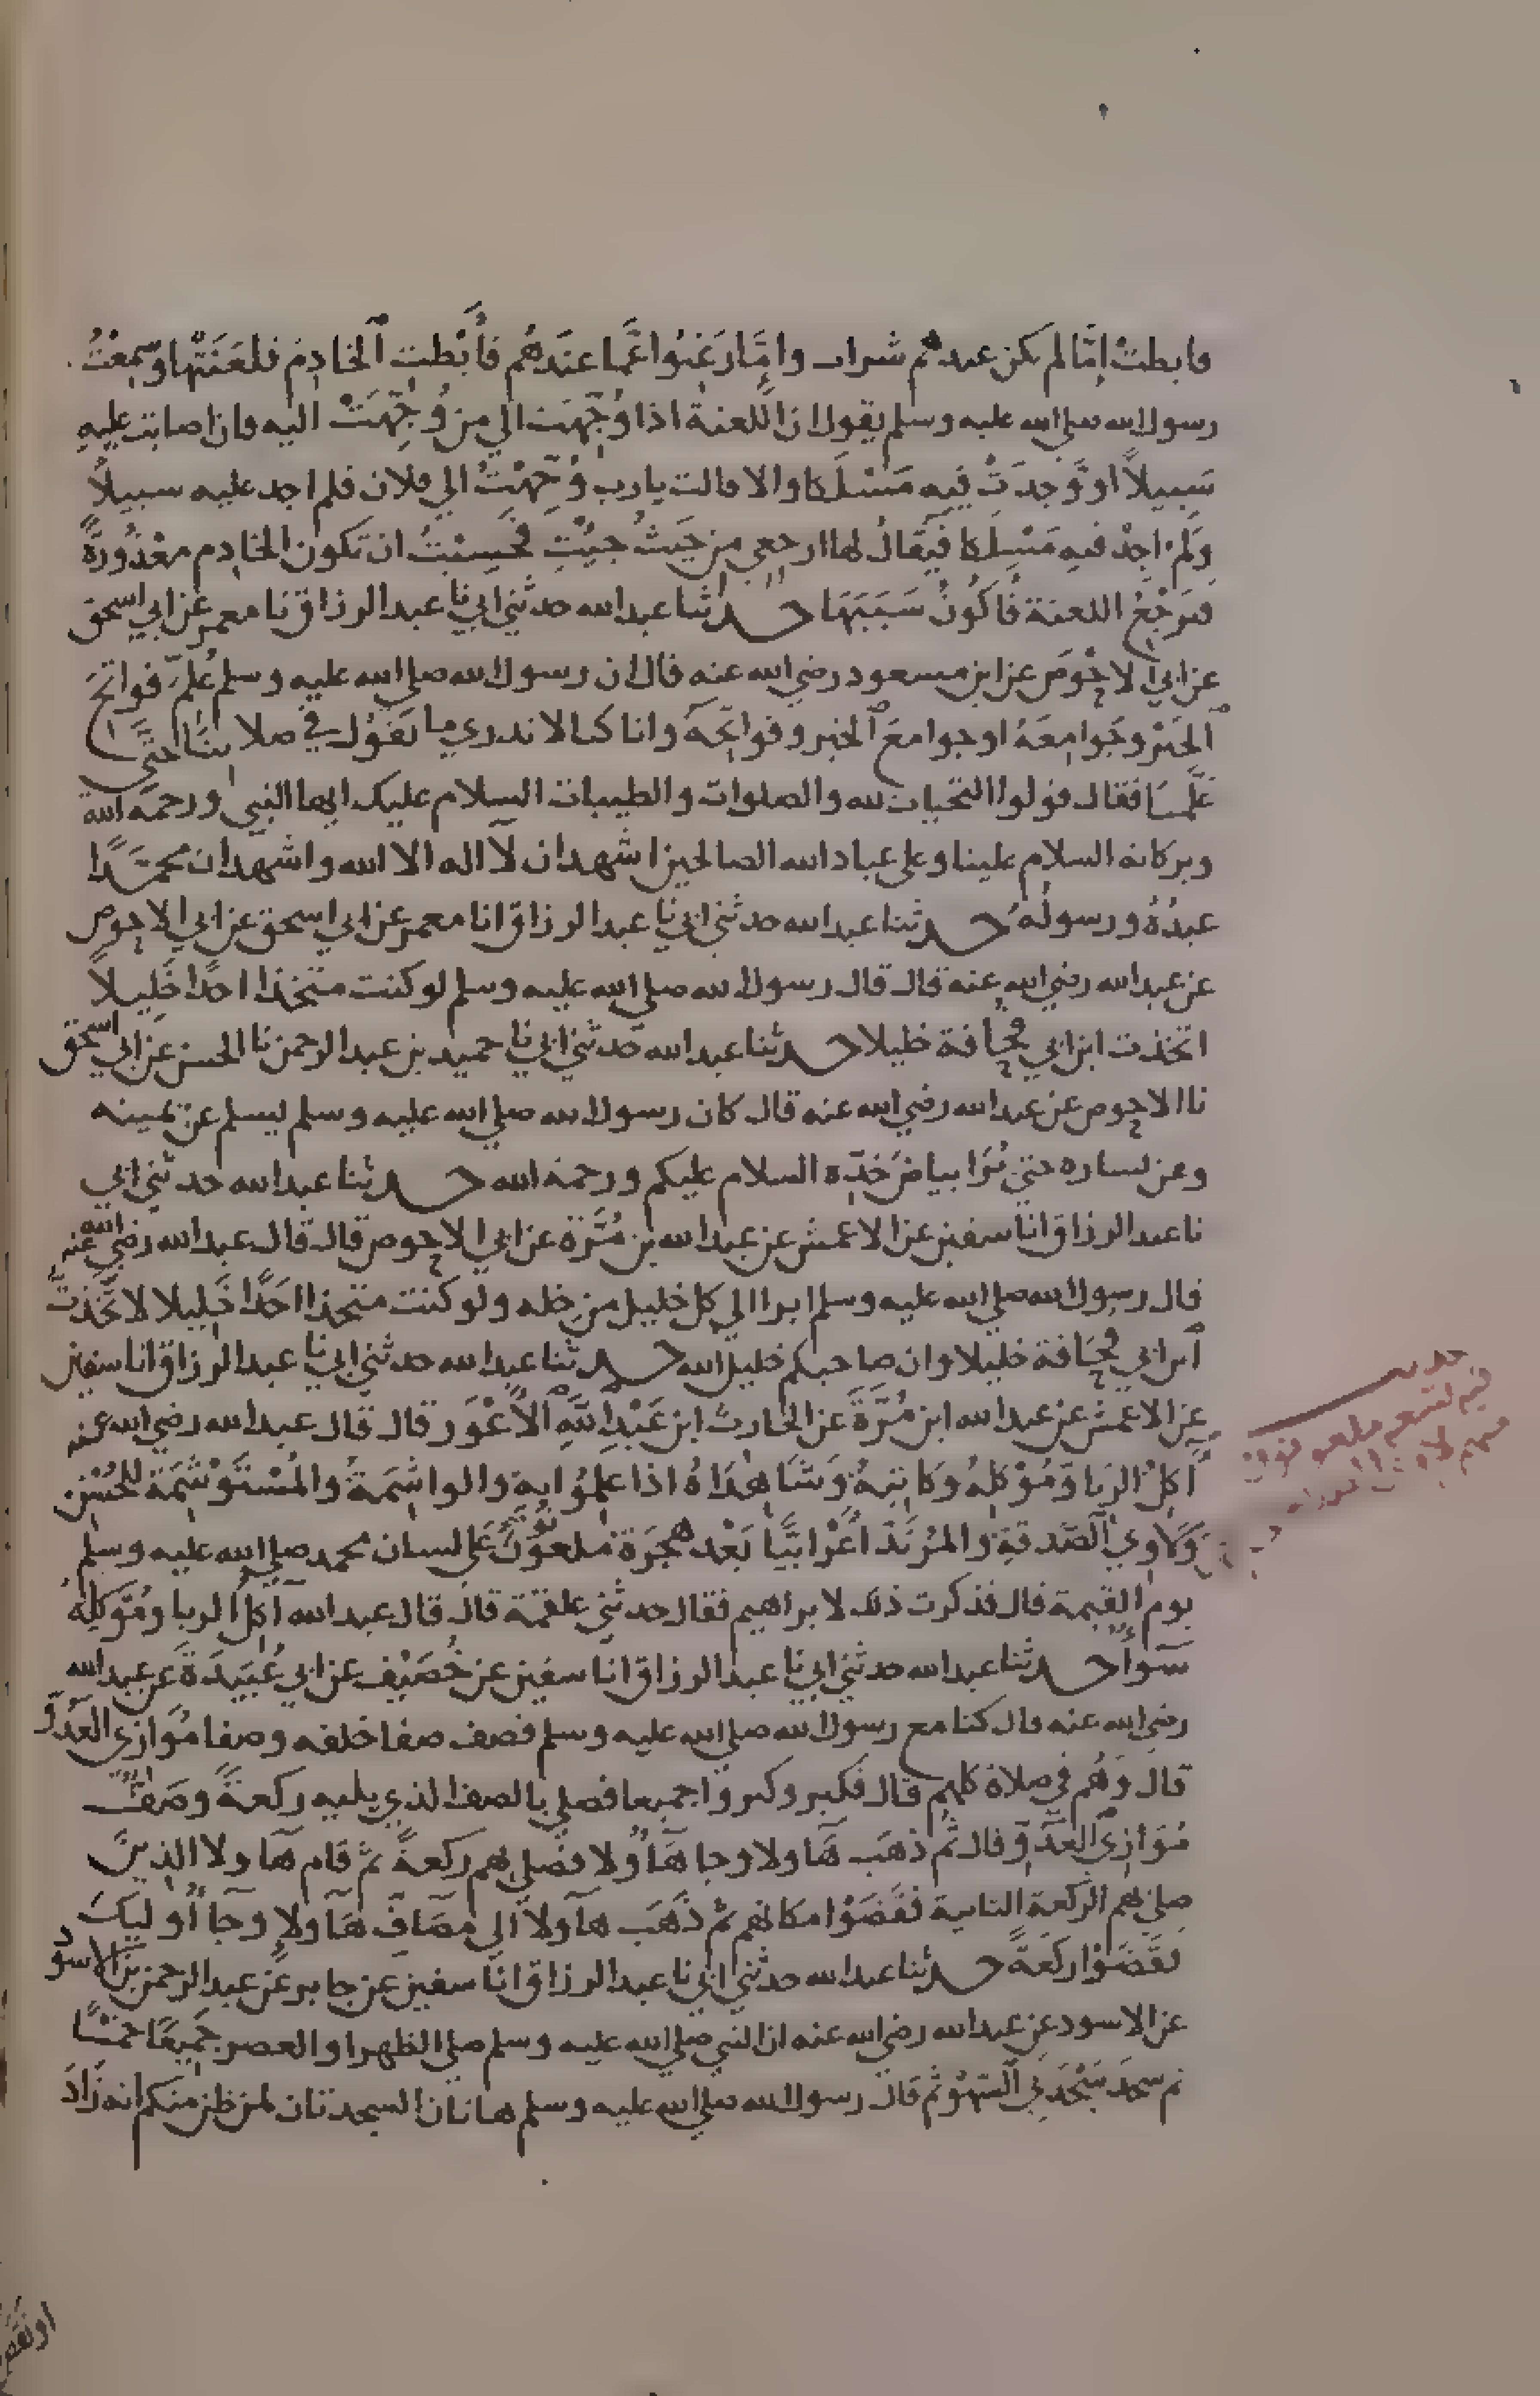 فابطتْ اِمَّا لم يكن عندهم شراب واِمَّا رَغِبُوا عَمَّا عندَهُم فَأَبْطت اَلخادِم فلعَنَتْها وَسَمِعْتُ
رسول الله صلى الله عليه وسلم يقول ان اللعنةُ اذا وُجِّهَت الي من وُجِّهَتْ اليه فان اصابت عليهِ
سَبيلاً او وَّجدَتْ فيه مَسْلَكا والا قالت يارب وُجِّهْتُ الي فلان فلم اجد عليه سبيلاً
وَلَم اجِدْ فيه مَسْلِكا فيُقالُ لها ارجعي من حَيثُ جيئْتِ فخَسيْتُ ان تكون الخادِم معْذُورةً
فترجْعُ اللعنة فاكُونُ سَبَبَهَا حدثنا عبد الله حدثني ابي نا عبد الرزاق نا معمر عن ابي اسحق
عن ابي الاحْوَص عن ابن مسعود رضي الله عنه قال ان رسول الله صلى الله عليه وسلم عُلِّمَ فواتحَ
اَلخَيْر وجَوامِعَهُ او جوامعَ اَلخير وفواتِحَهُ وانا كنا لا ندري ما نقُولُ في صلاتنَا حتَّى
عَلَّمنَا فقال قولوا التحيات لله والصلوات والطيبات السلام عليك ايها النبي ورحمة الله
وبركاته السلام علينا وعلى عباد الله الصالحين اشهد ان لآ اله الا الله واشهد ان محمَّدًا
عبدُهُ ورسولُه حدثنا عبد الله حدثني ابي نا عبد الرزاق انا معمر عن ابي اسحق عن ابي الاحوص
عن عبد الله رضي الله عنه قال قال رسول الله صلى الله عليه وسلم لو كنت متخذا احدًا خَليلاً
اتخذت ابن ابي قُحافة خليلا حدثنا عبد الله حدثني ابي نا حميد بن عبد الرحمن نا الحسن عن ابي اسحق
نا الاحوص عن عبد الله رضي الله عنه قال كان رسول الله صلى الله عليه وسلم يسلم عن يمينه
وعن يساره حتي يُرَا بياضُ خَدِّه السلام عليكم ورحمة الله حدثنا عبد الله حدثني ابي
نا عبد الرزاق انا سفين عن الاعمش عن عبد الله بن مُرَّة عن ابي الاحوص قال قال عبد الله رضي الله عنه
قال رسول الله صلى الله عليه وسلم ابرا الي كل خليل من خله ولو كنت متخذا احَدًا خَليلا لاتَّخَذتُ
اَبن ابي قُحَافة خليلا وان صاحبكم خليل الله حدثنا عبد الله حدثني ابي نا عبد الرزاق انا سفين
عن الاعمش عن عبد الله ابن مُرَّةَ عن الحارث ابن عَبْدِ اللَّهِ اَلاَعْوَر قال قال عبد الله رضي الله عنه
آكِلُ الرِبا وَمُوْكِلِهُ وَكاتِبهُ وَشَاهِدَاهُ اذا عَلِمُوا به والواشِمَةُ والمُسْتَوْشِمَة للحُسْن
وَلَاوِي اَلصَّدقةِ والمُرْتَدّ اَعْرَابيًّا بَعْد هجْرَةٍ ملعُونُونَ عَلى لسان محمد صلى الله عليه وسلم
يوم القيمة قال فذكرت ذلك لابراهيم فقال حدثني علقمة قال قال عبد الله آكلُ الربا ومُوَكِلِهُ
سَوآءٌ حدثنا عبد الله حدثني ابي نا عبد الرزاق انا سفين عن خُصَيْف عن ابي عُبَيدَةَ عن عبد الله
رضي الله عنه قال كنا مع رسول الله صلى الله عليه وسلم فصف صفا خلفه وصفا مُوازِي العَدُوِّ
قال وَهُم في صلاة كلهم قال فكبر وكبروا جميعا فصلي بالصف الذي يليه ركعةً وصَفٌّ
مُوَازي العَدُوِّ قال ثم ذهَب هَآولا وجا هَآُولا فصَلي بهم ركعةً ثم قام هآولا الذينَ
صلي بهم الرَّكعة الثانية فقَضَوْا مكانهم ثم ذَهَب هآولآ الي مصَافِّ هَآولا وجآ أُوليكَ
فقَضَوْا ركعَةً حدثنا عبد الله حدثني ابي نا عبد الرزاق انا سفين عن جابر عن عبد الرحمن بن الاسود
عن الاسود عن عبد الله رضي الله عنه ان النبي صلى الله عليه وسلم صلي الظهر او العصر جَميعًا خمسًا
ثم سجد سَجْدَتي السَّهوُ ثم قال رسول الله صلى الله عليه وسلم هاتان السجدتان لمن ظن منكم انه زَادَ
حديث
فيه لتسعه ملعونون
منهم لاوي الصدقة
او نقص